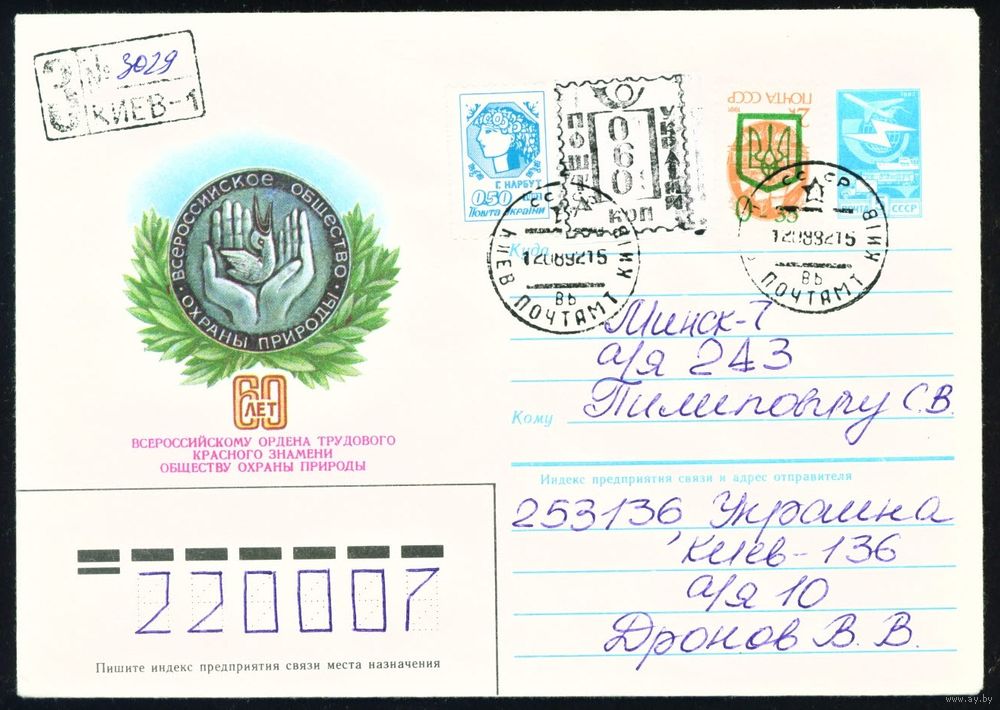 З № 3029
КИЕВ-1
ВСЕРОССИЙСКОЕ ОБЩЕСТВО
ОХРАНЫ ПРИРОДЫ
60
ЛЕТ
ВСЕРОССИЙСКОМУ ОРДЕНА ТРУДОВОГО
КРАСНОГО ЗНАМЕНИ
ОБЩЕСТВУ ОХРАНЫ ПРИРОДЫ
Г. НАРБУТ
0,50
Пошта України
ПОШТА
060
КОП
УКРАЇНИ
2к
ПОЧТА СССР
1991
1982
ПОЧТА СССР
СССР
12089215
8Ь
КИЕВ ПОЧТАМТ КИÏВ
СССР
12089215
8Ь
ПОЧТАМТ КИÏВ
Куда
Минск-7
а/я 243
Кому Пилиповичу С.В.
Индекс предприятия связи и адрес отправителя
253136 Украина
Киев-136
а/я 10
Дронов В. В.
220007
Пишите индекс предприятия связи места назначения
www.ay.by